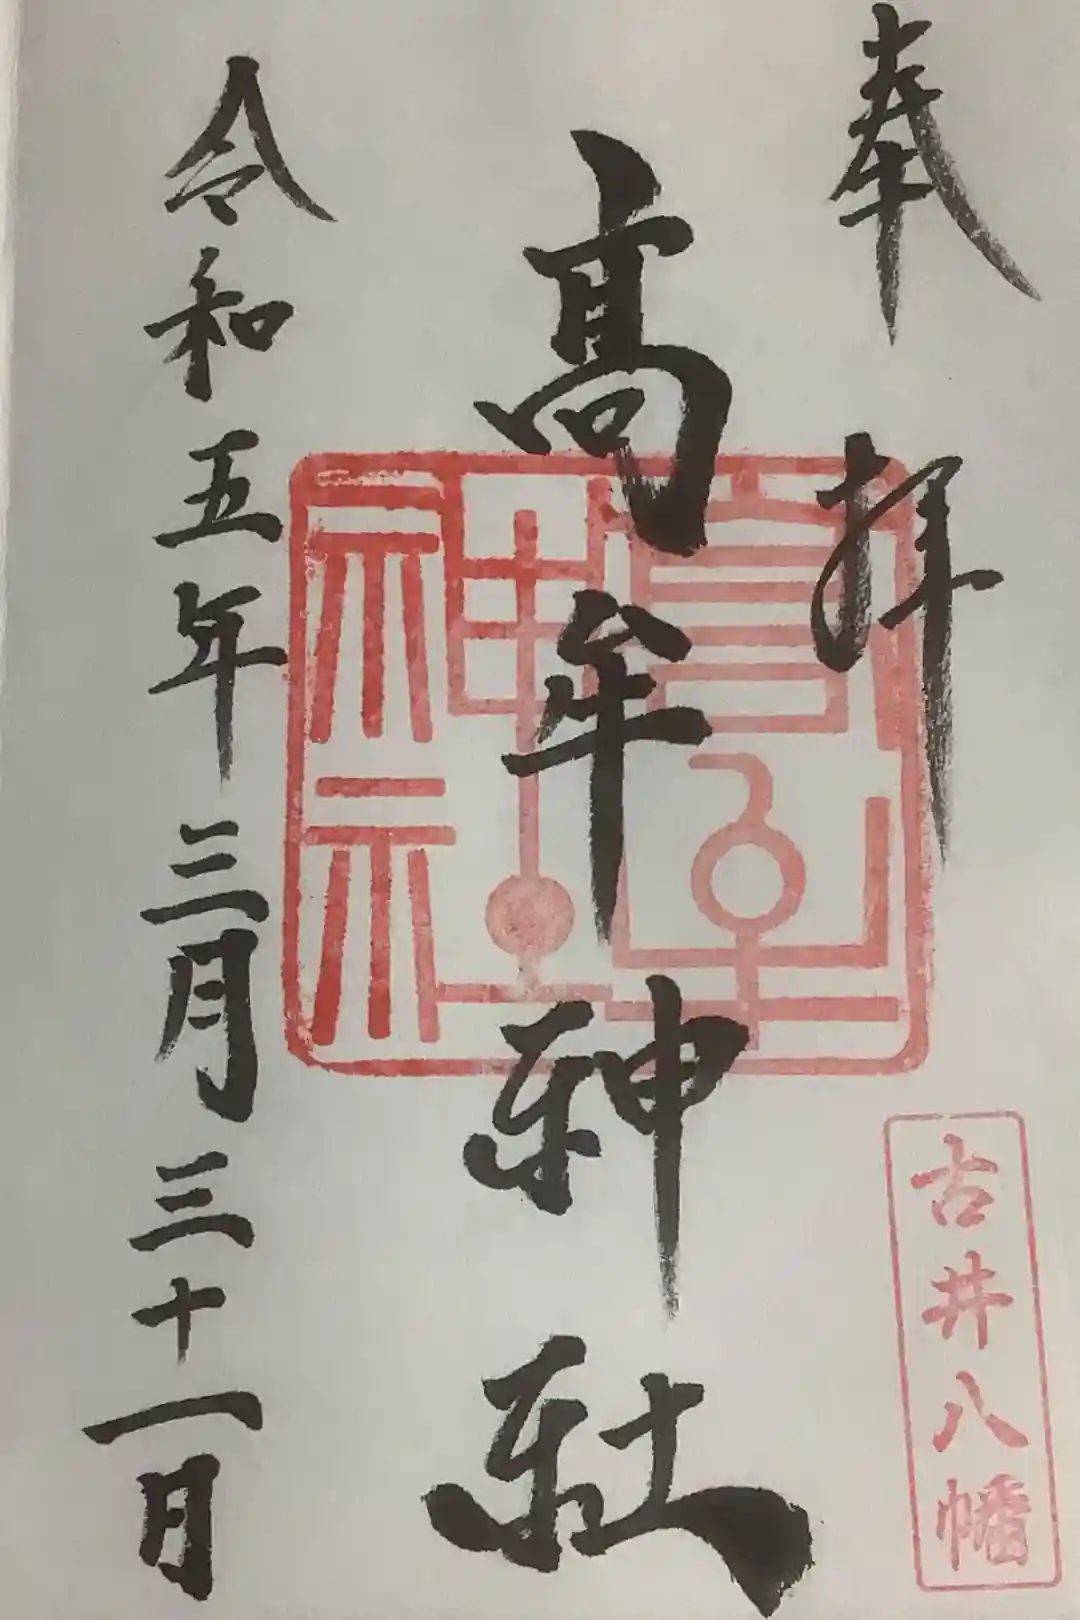 奉拝
髙牟神社
令和五年三月三十一日
髙牟神社
古井八幡